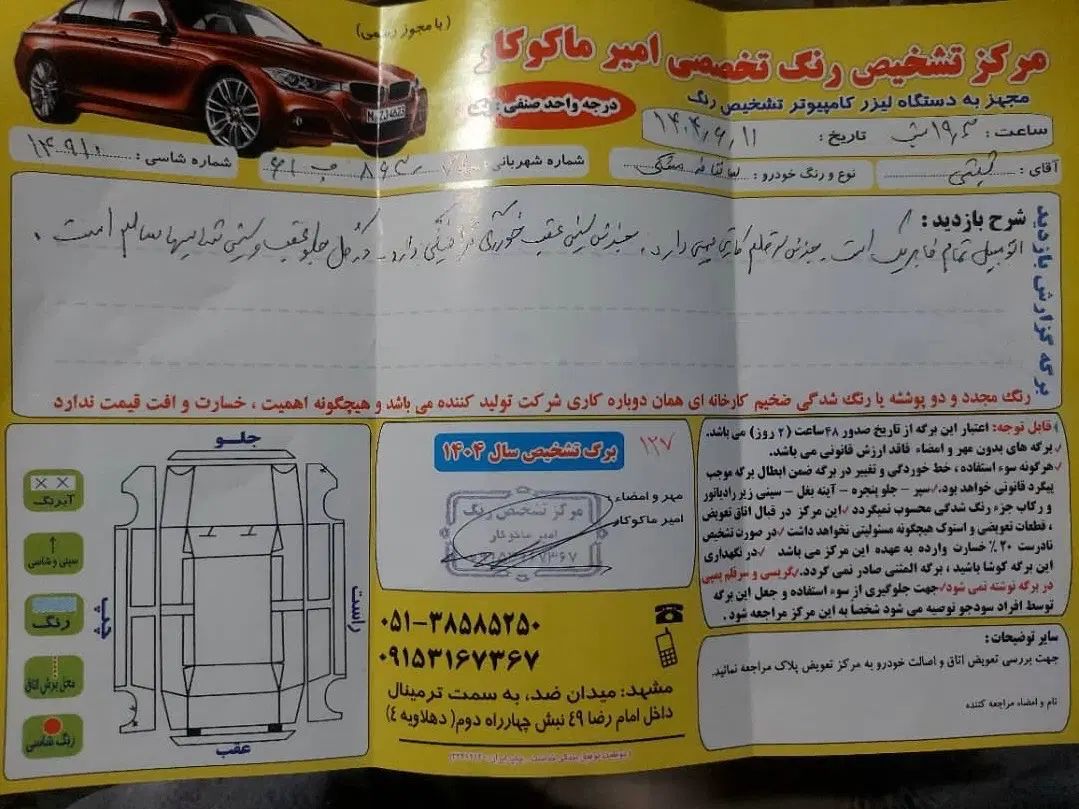 (با مجوز رسمی)
مرکز تشخیص رنگ تخصصی امیر ماکوکار
مجهز به دستگاه لیزر کامپیوتر تشخیص رنگ
درجه واحد صنفی: یک
ساعت: ۱۹٫۳۰ تاریخ: ۱۴۰۴٫۶٫۱۱
آقای:
نوع و رنگ خودرو: مشکی
شماره شهربانی:
شماره شاسی: ۱۴۰۹۱۰
برگه گزارش بازدید
شرح بازدید:
اتومبیل تمام فابریک است. دارد. سینی عقب خوردگی دارد. در کل جلو عقب و ستون شاسیها سالم است.
رنگ مجدد و دو پوششه یا رنگ شدگی ضخیم کارخانه ای همان دوباره کاری شرکت تولید کننده می باشد و هیچگونه اهمیت ، خسارت و افت قیمت ندارد
قابل توجه: اعتبار این برگه از تاریخ صدور ۴۸ساعت (۲ روز) می باشد.
برگه های بدون مهر و امضاء فاقد ارزش قانونی می باشد.
هرگونه سوء استفاده ، خط خوردگی و تغییر در برگه ضمن ابطال برگه موجب
پیگرد قانونی خواهد بود. سپر - جلو پنجره - آینه بغل - سینی زیر رادیاتور
و رکاب جزء رنگ شدگی محسوب نمیگردد این مرکز در قبال اتاق تعویض
، قطعات تعویضی و استوک هیچگونه مسئولیتی نخواهد داشت در صورت تشخیص
نادرست ۲۰٪ خسارت وارده به عهده این مرکز می باشد در نگهداری
این برگه کوشا باشید ، برگه المثنی صادر نمی گردد. گریسی و سرقلم پمپی
در برگه نوشته نمی شود جهت جلوگیری از سوء استفاده و جعل این برگه
توسط افراد سودجو توصیه می شود شخصا به این مرکز مراجعه شود .
سایر توضیحات:
جهت بررسی تعویض اتاق و اصالت خودرو به مرکز تعویض پلاک مراجعه نمائید.
نام و امضاء مراجعه کننده
۱۲۷
برگ تشخیص سال ۱۴۰۴
مهر و امضاء:
امیر ماکوکار
مرکز تشخیص رنگ
امیر ماکوکار
۰۹۱۵۳۱۶۷۳۶۷
۰۵۱-۳۸۵۸۵۲۵۰
۰۹۱۵۳۱۶۷۳۶۷
مشهد: میدان ضد، به سمت ترمینال
داخل امام رضا ۴۹ نبش چهارراه دوم( دهلاویه ۴)
جلو
راست
چپ
عقب
آبرنگ
سینی و شاسی
رنگ
محل برش اتاق
رنگ شاسی